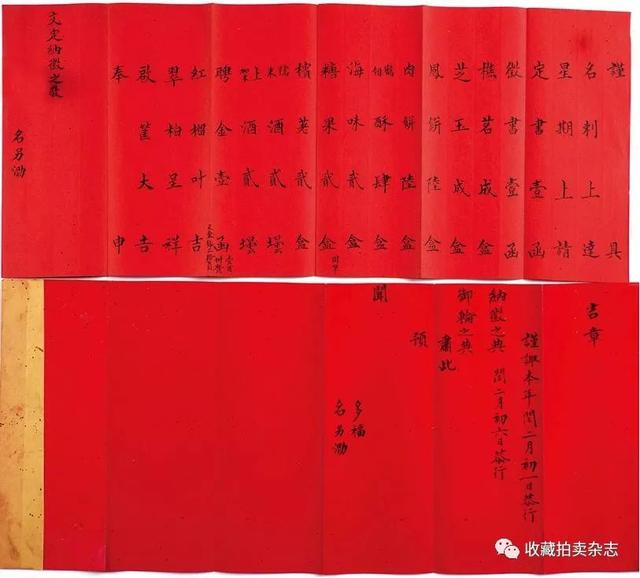 謹具
名刺上達
星期上請
定書壹函
徵書壹函
樵茗成盒
芝玉成盒
鳳餅陸盒
肉餅陸盒
酥肆盒
海味貳盒
糖果貳盒
檳英貳盒
糯米酒貳壜
上架酒貳壜
聘金壹函
紅榴叶吉
翠柏呈祥
啟筐大吉
奉申
文定納徵之敬
名另泐
吉章
謹諏本年閏二月初一日恭行
納徵之典 閏二月初六日恭行
御輪之典
肅此
預
聞
多福
名另泐
收藏拍卖杂志